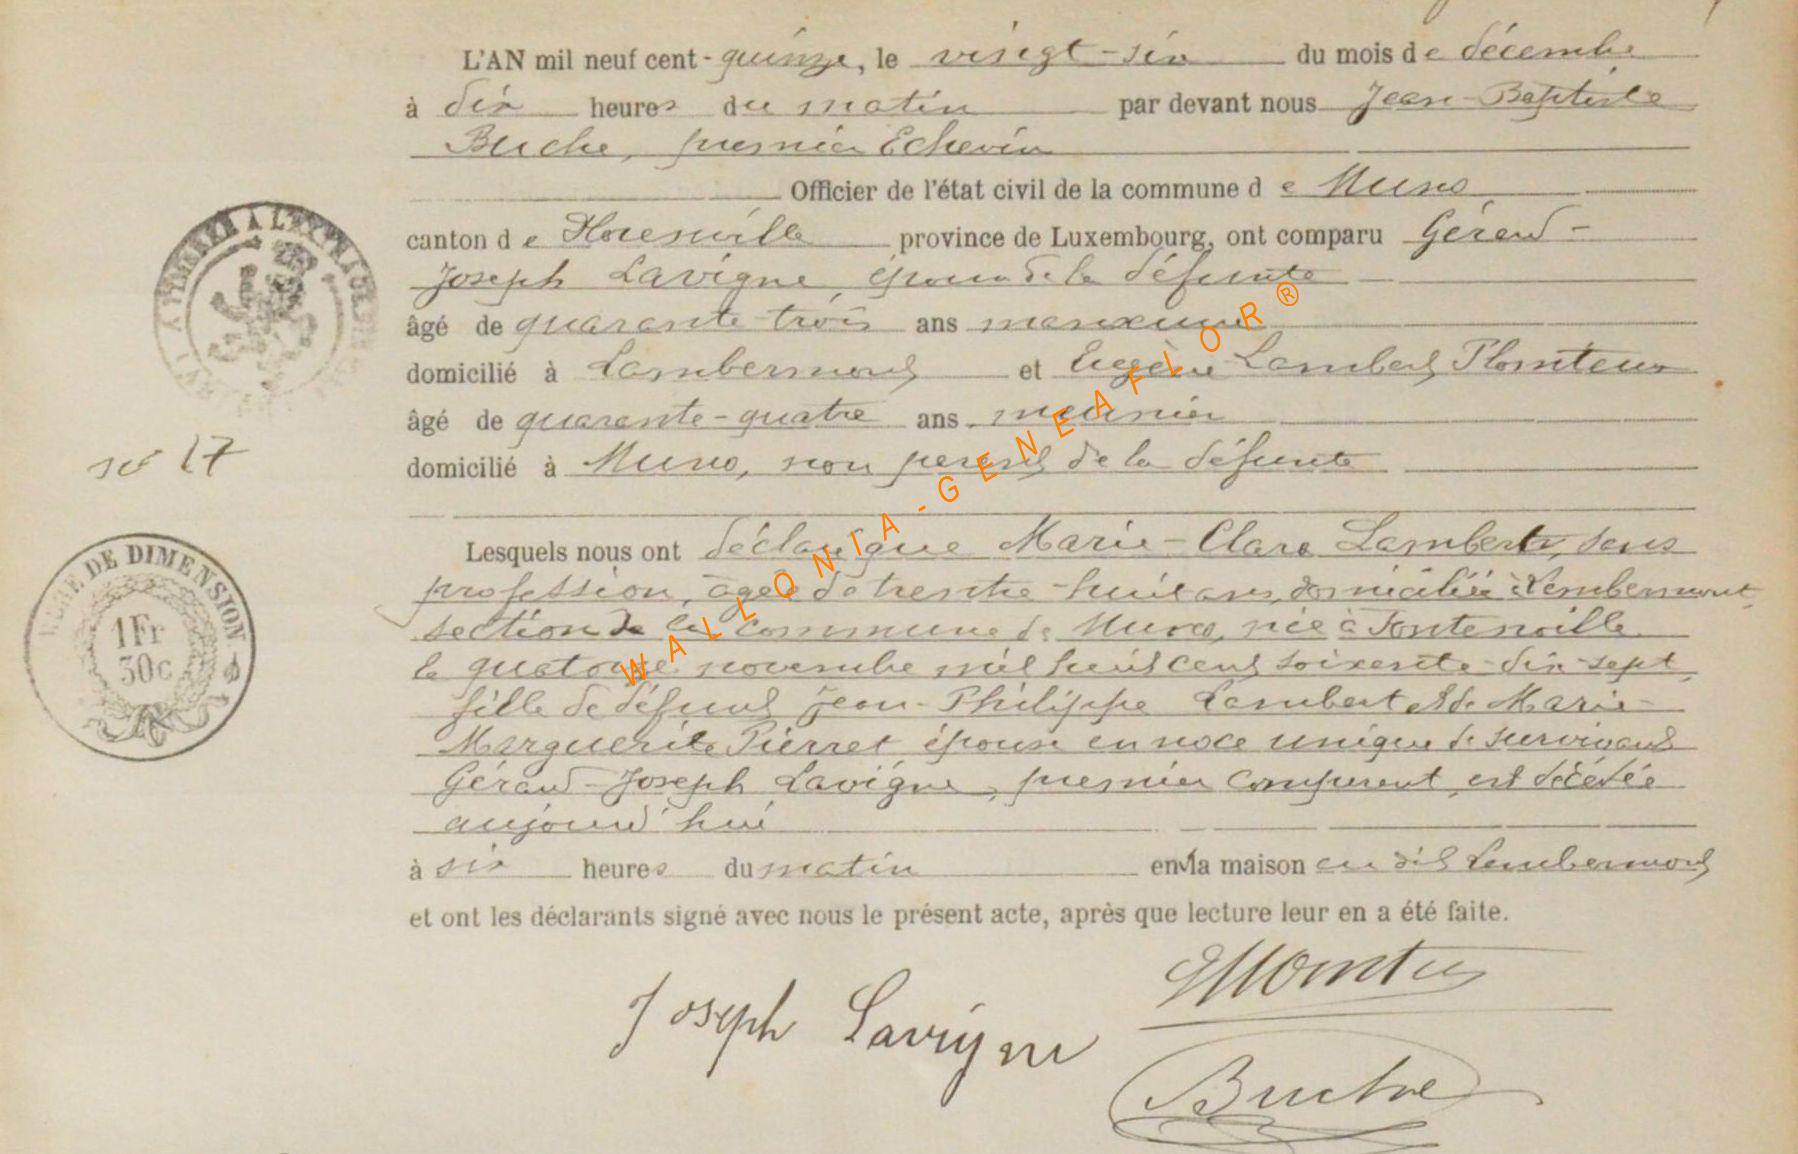 L'AN mil neuf cent-quinze, le vingt-six du mois de décembre
à dix heures du matin par devant nous Jean-Baptiste
Buche, premier Echevin
Officier de l'état civil de la commune de Muno
canton de Florenville province de Luxembourg, ont comparu Gérard-
Joseph Lavigne époux de la défunte
âgé de quarante trois ans manœuvre
domicilié à Lambermont et Eugène Lambert Plomteux
âgé de quarante-quatre ans meunier
domicilié à Muno, non parent de la défunte
no 17
Lesquels nous ont déclaré que Marie-Clara Lambert, sans
profession, âgée de trente-huit ans, domiciliée à Lambermont
section de la commune de Muno, née à Fontenoille
le quatorze novembre mil huit cent soixante-dix-sept,
fille de défunt Jean-Philippe Lambert et de Marie-
Marguerite Pierret épouse en noce unique de survivant
Gérard-Joseph Lavigne, premier comparant, est décédée
aujourd'hui
à six heures du matin en la maison au dit Lambermont
et ont les déclarants signé avec nous le présent acte, après que lecture leur en a été faite.
Joseph Lavigne
EPlomteux
Buche
DE DIMENSION
1Fr
30c
A L'EXTRAORDIN
WALLONIA-GENEAFLOR®